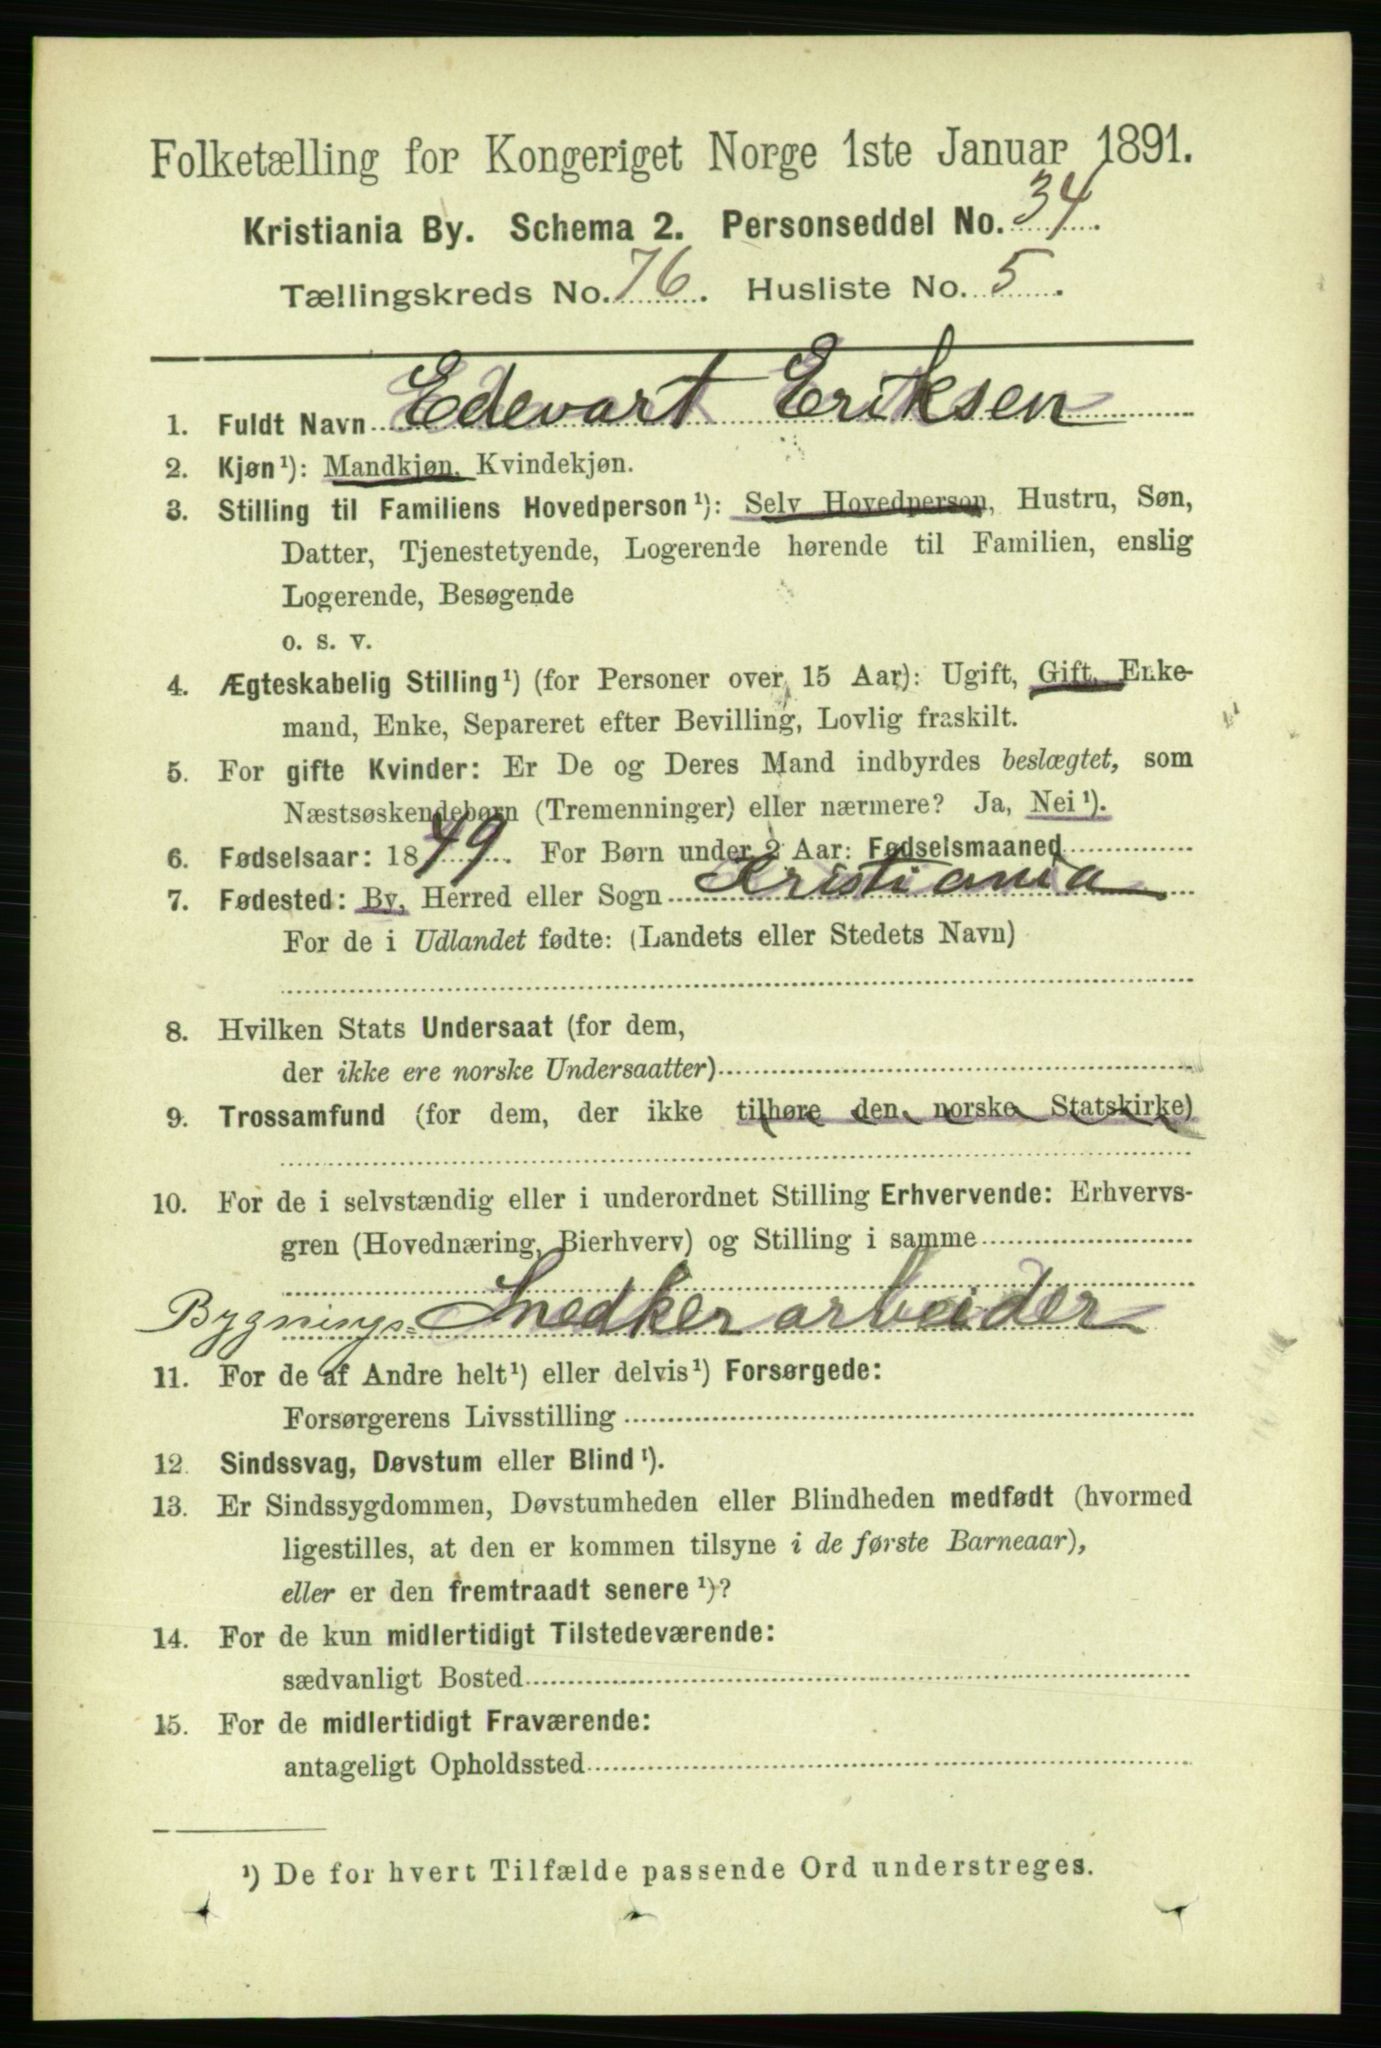 Folketælling for Kongeriget Norge 1ste Januar 1891.
Kristiania By. Schema 2. Personseddel No. 34.
Tællingskreds No. 76. Husliste No. 5.
1. Fuldt Navn Edevart Eriksen
2. Kjøn¹): Mandkjøn, Kvindekjøn.
3. Stilling til Familiens Hovedperson¹): Selv Hovedperson, Hustru, Søn,
Datter, Tjenestetyende, Logerende hørende til Familien, enslig
Logerende, Besøgende
o. s. v.
4. Ægteskabelig Stilling¹) (for Personer over 15 Aar): Ugift, Gift, Enke-
mand, Enke, Separeret efter Bevilling, Lovlig fraskilt.
5. For gifte Kvinder: Er De og Deres Mand indbyrdes beslægtet, som
Næstsøskendebørn (Tremenninger) eller nærmere? Ja, Nei¹).
6. Fødselsaar: 1849. For Børn under 2 Aar: Fødselsmaaned
7. Fødested: By, Herred eller Sogn Kristiania
For de i Udlandet fødte: (Landets eller Stedets Navn)
8. Hvilken Stats Undersaat (for dem,
der ikke ere norske Undersaatter)
9. Trossamfund (for dem, der ikke tilhøre den norske Statskirke)
10. For de i selvstændig eller i underordnet Stilling Erhvervende: Erhvervs-
gren (Hovednæring, Bierhverv) og Stilling i samme
Bygnings= Snedker arbeider
11. For de af Andre helt¹) eller delvis¹) Forsørgede:
Forsørgerens Livsstilling
12. Sindssvag, Døvstum eller Blind¹).
13. Er Sindssygdommen, Døvstumheden eller Blindheden medfødt (hvormed
ligestilles, at den er kommen tilsyne i de første Barneaar),
eller er den fremtraadt senere¹)?
14. For de kun midlertidigt Tilstedeværende:
sædvanligt Bosted
15. For de midlertidigt Fraværende:
antageligt Opholdssted
¹) De for hvert Tilfælde passende Ord understreges.